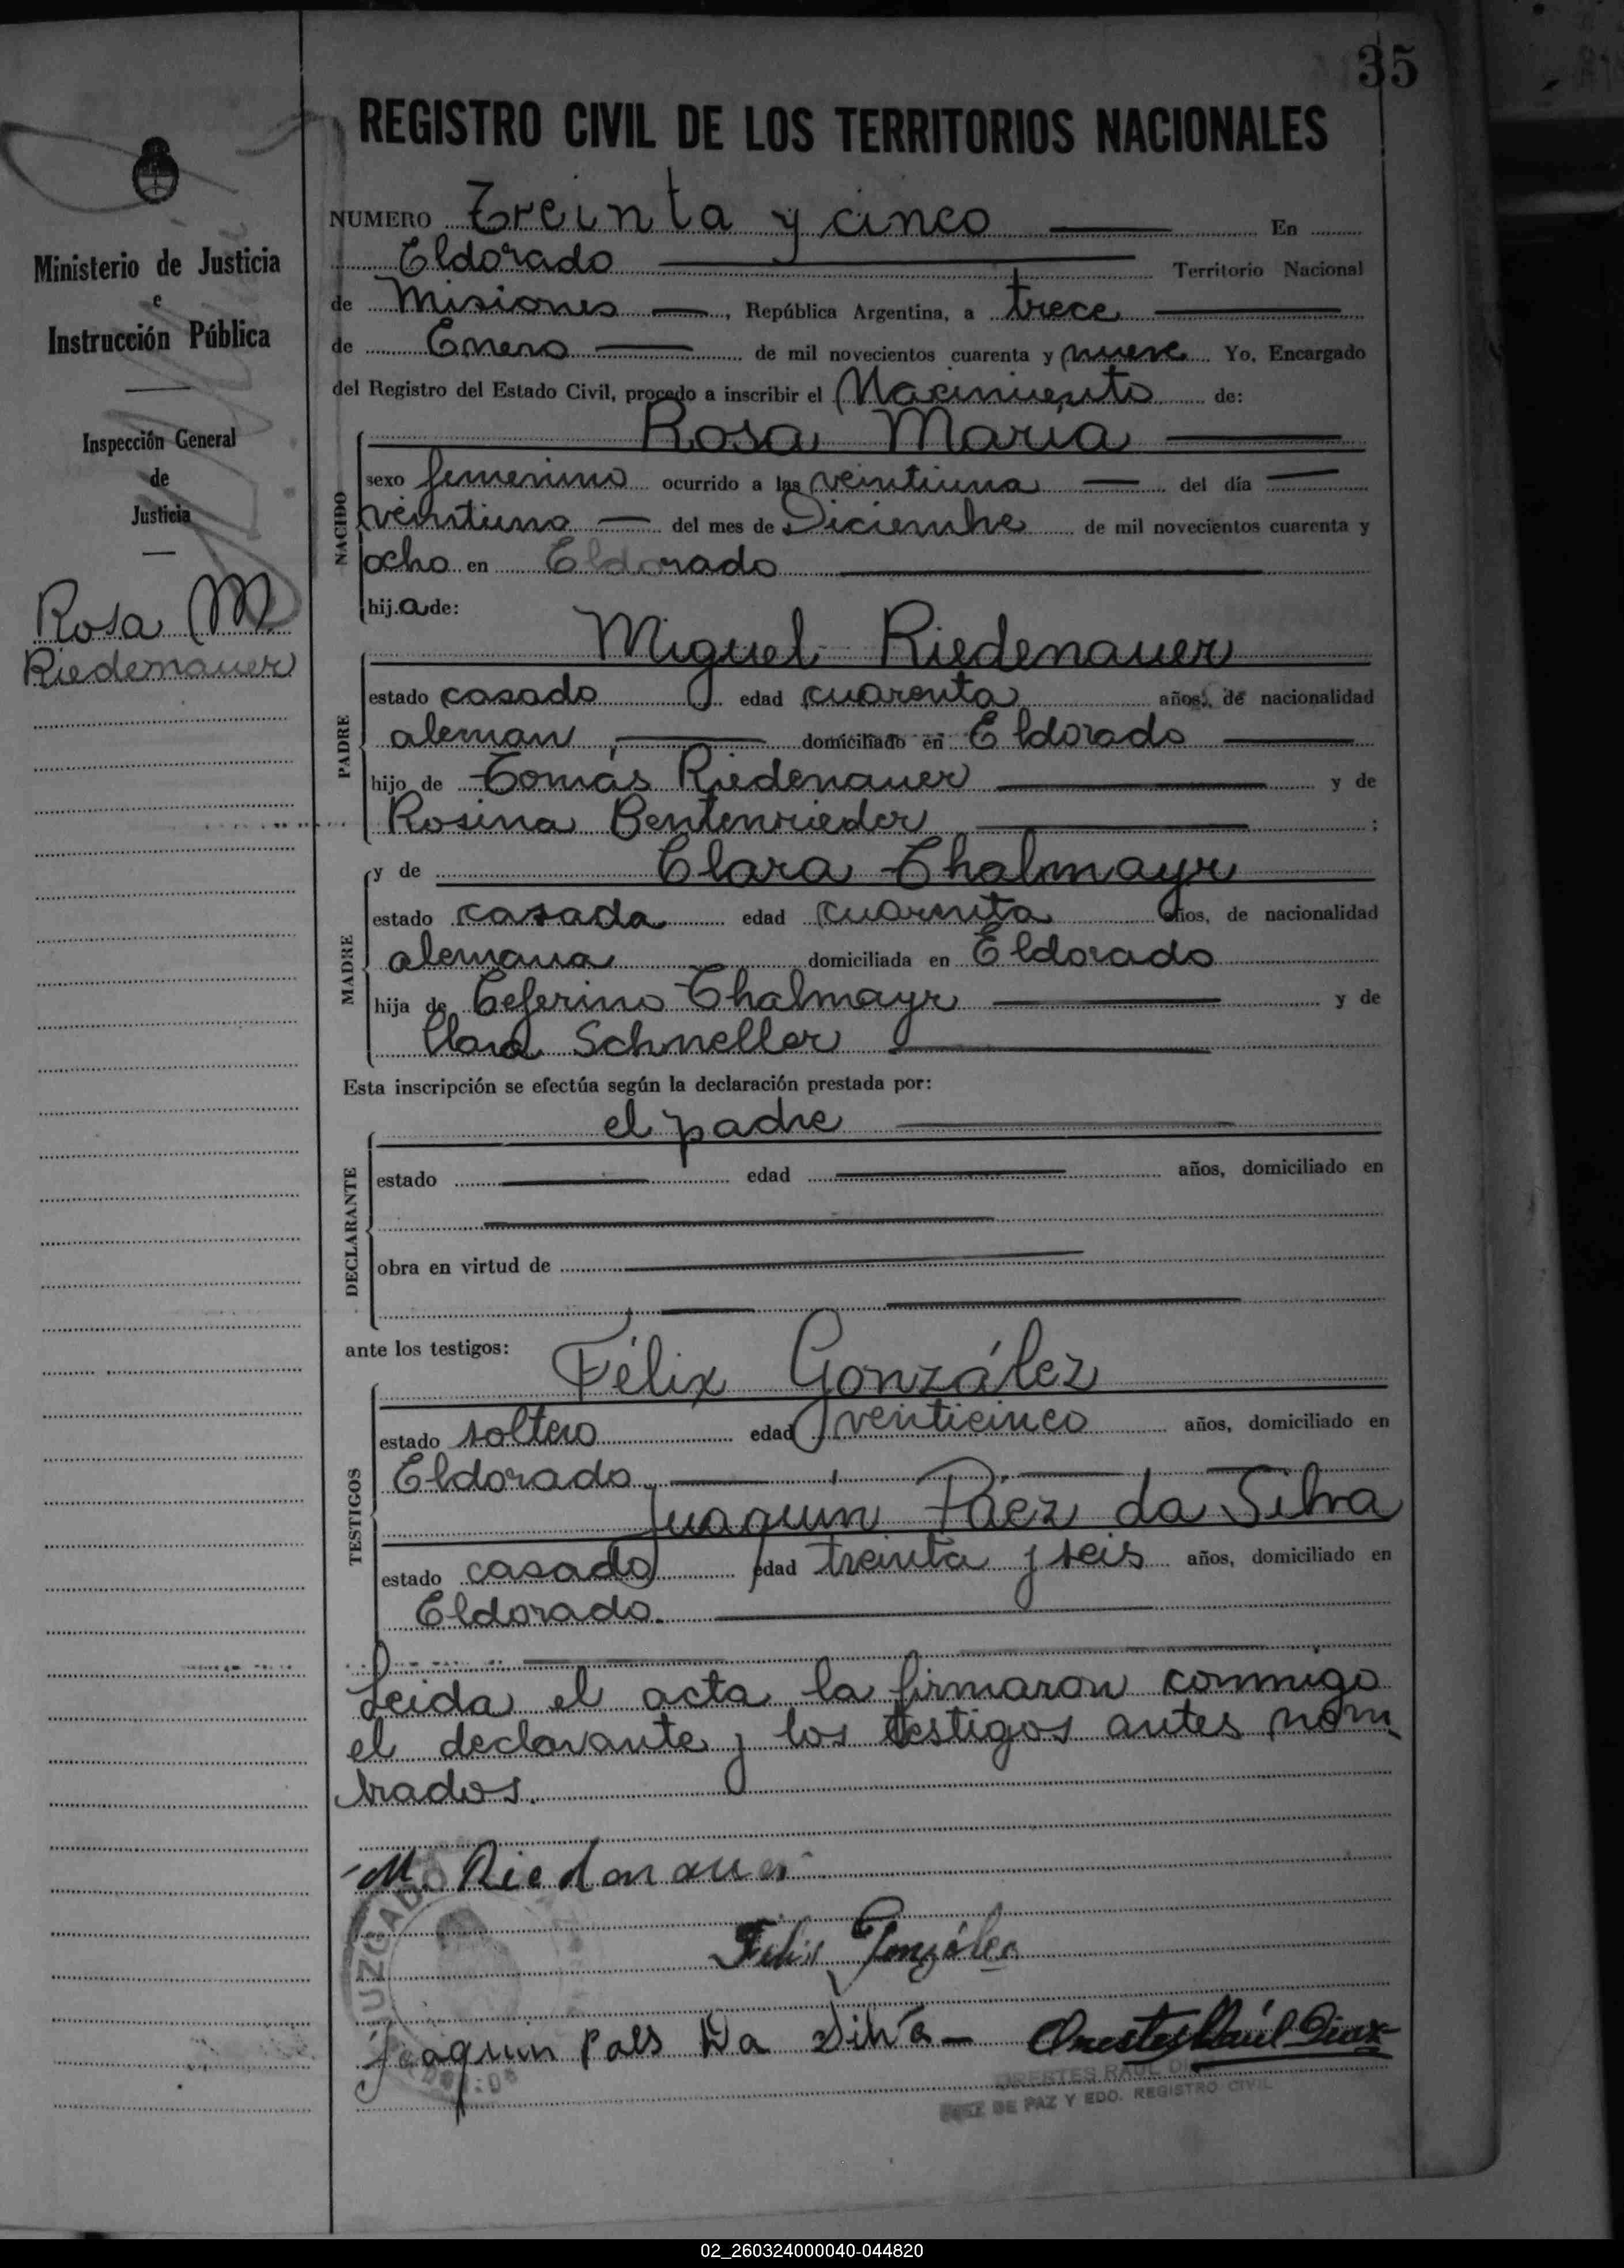 35
REGISTRO CIVIL DE LOS TERRITORIOS NACIONALES
Ministerio de Justicia
e
Instrucción Pública
Inspección General
de
Justicia
Rosa M.
Riedenauer
NUMERO Treinta y cinco En
Eldorado Territorio Nacional
de Misiones, República Argentina, a trece
de Enero de mil novecientos cuarenta y nueve Yo, Encargado
del Registro del Estado Civil, procedo a inscribir el Nacimiento de:
Rosa María
NACIDO
sexo femenino ocurrido a las veintiuna del día
veintiuno del mes de Diciembre de mil novecientos cuarenta y
ocho en Eldorado
hij.a de:
Miguel Riedenauer
PADRE
estado casado edad cuarenta años, de nacionalidad
aleman domiciliado en Eldorado
hijo de Tomás Riedenauer y de
Rosina Bentenrieder ;
y de Clara Thalmayr
MADRE
estado casada edad cuarenta años, de nacionalidad
alemana domiciliada en Eldorado
hija de Ceferino Thalmayr y de
Clara Schneller
Esta inscripción se efectúa según la declaración prestada por:
el padre
DECLARANTE
estado edad años, domiciliado en
obra en virtud de
ante los testigos:
Félix González
TESTIGOS
estado soltero edad venticinco años, domiciliado en
Eldorado
Juaquín Páez da Silva
estado casado edad treinta y seis años, domiciliado en
Eldorado.
Leida el acta la firmaron conmigo
el declarante y los testigos antes nom
brados.
M. Riedenauer
Felix González
Joaquin Paes Da Silva - Orestes Raúl Diaz
JUZGADO
ORESTES RAUL DIAZ
JUEZ DE PAZ Y EDO. REGISTRO CIVIL
02_260324000040-044820